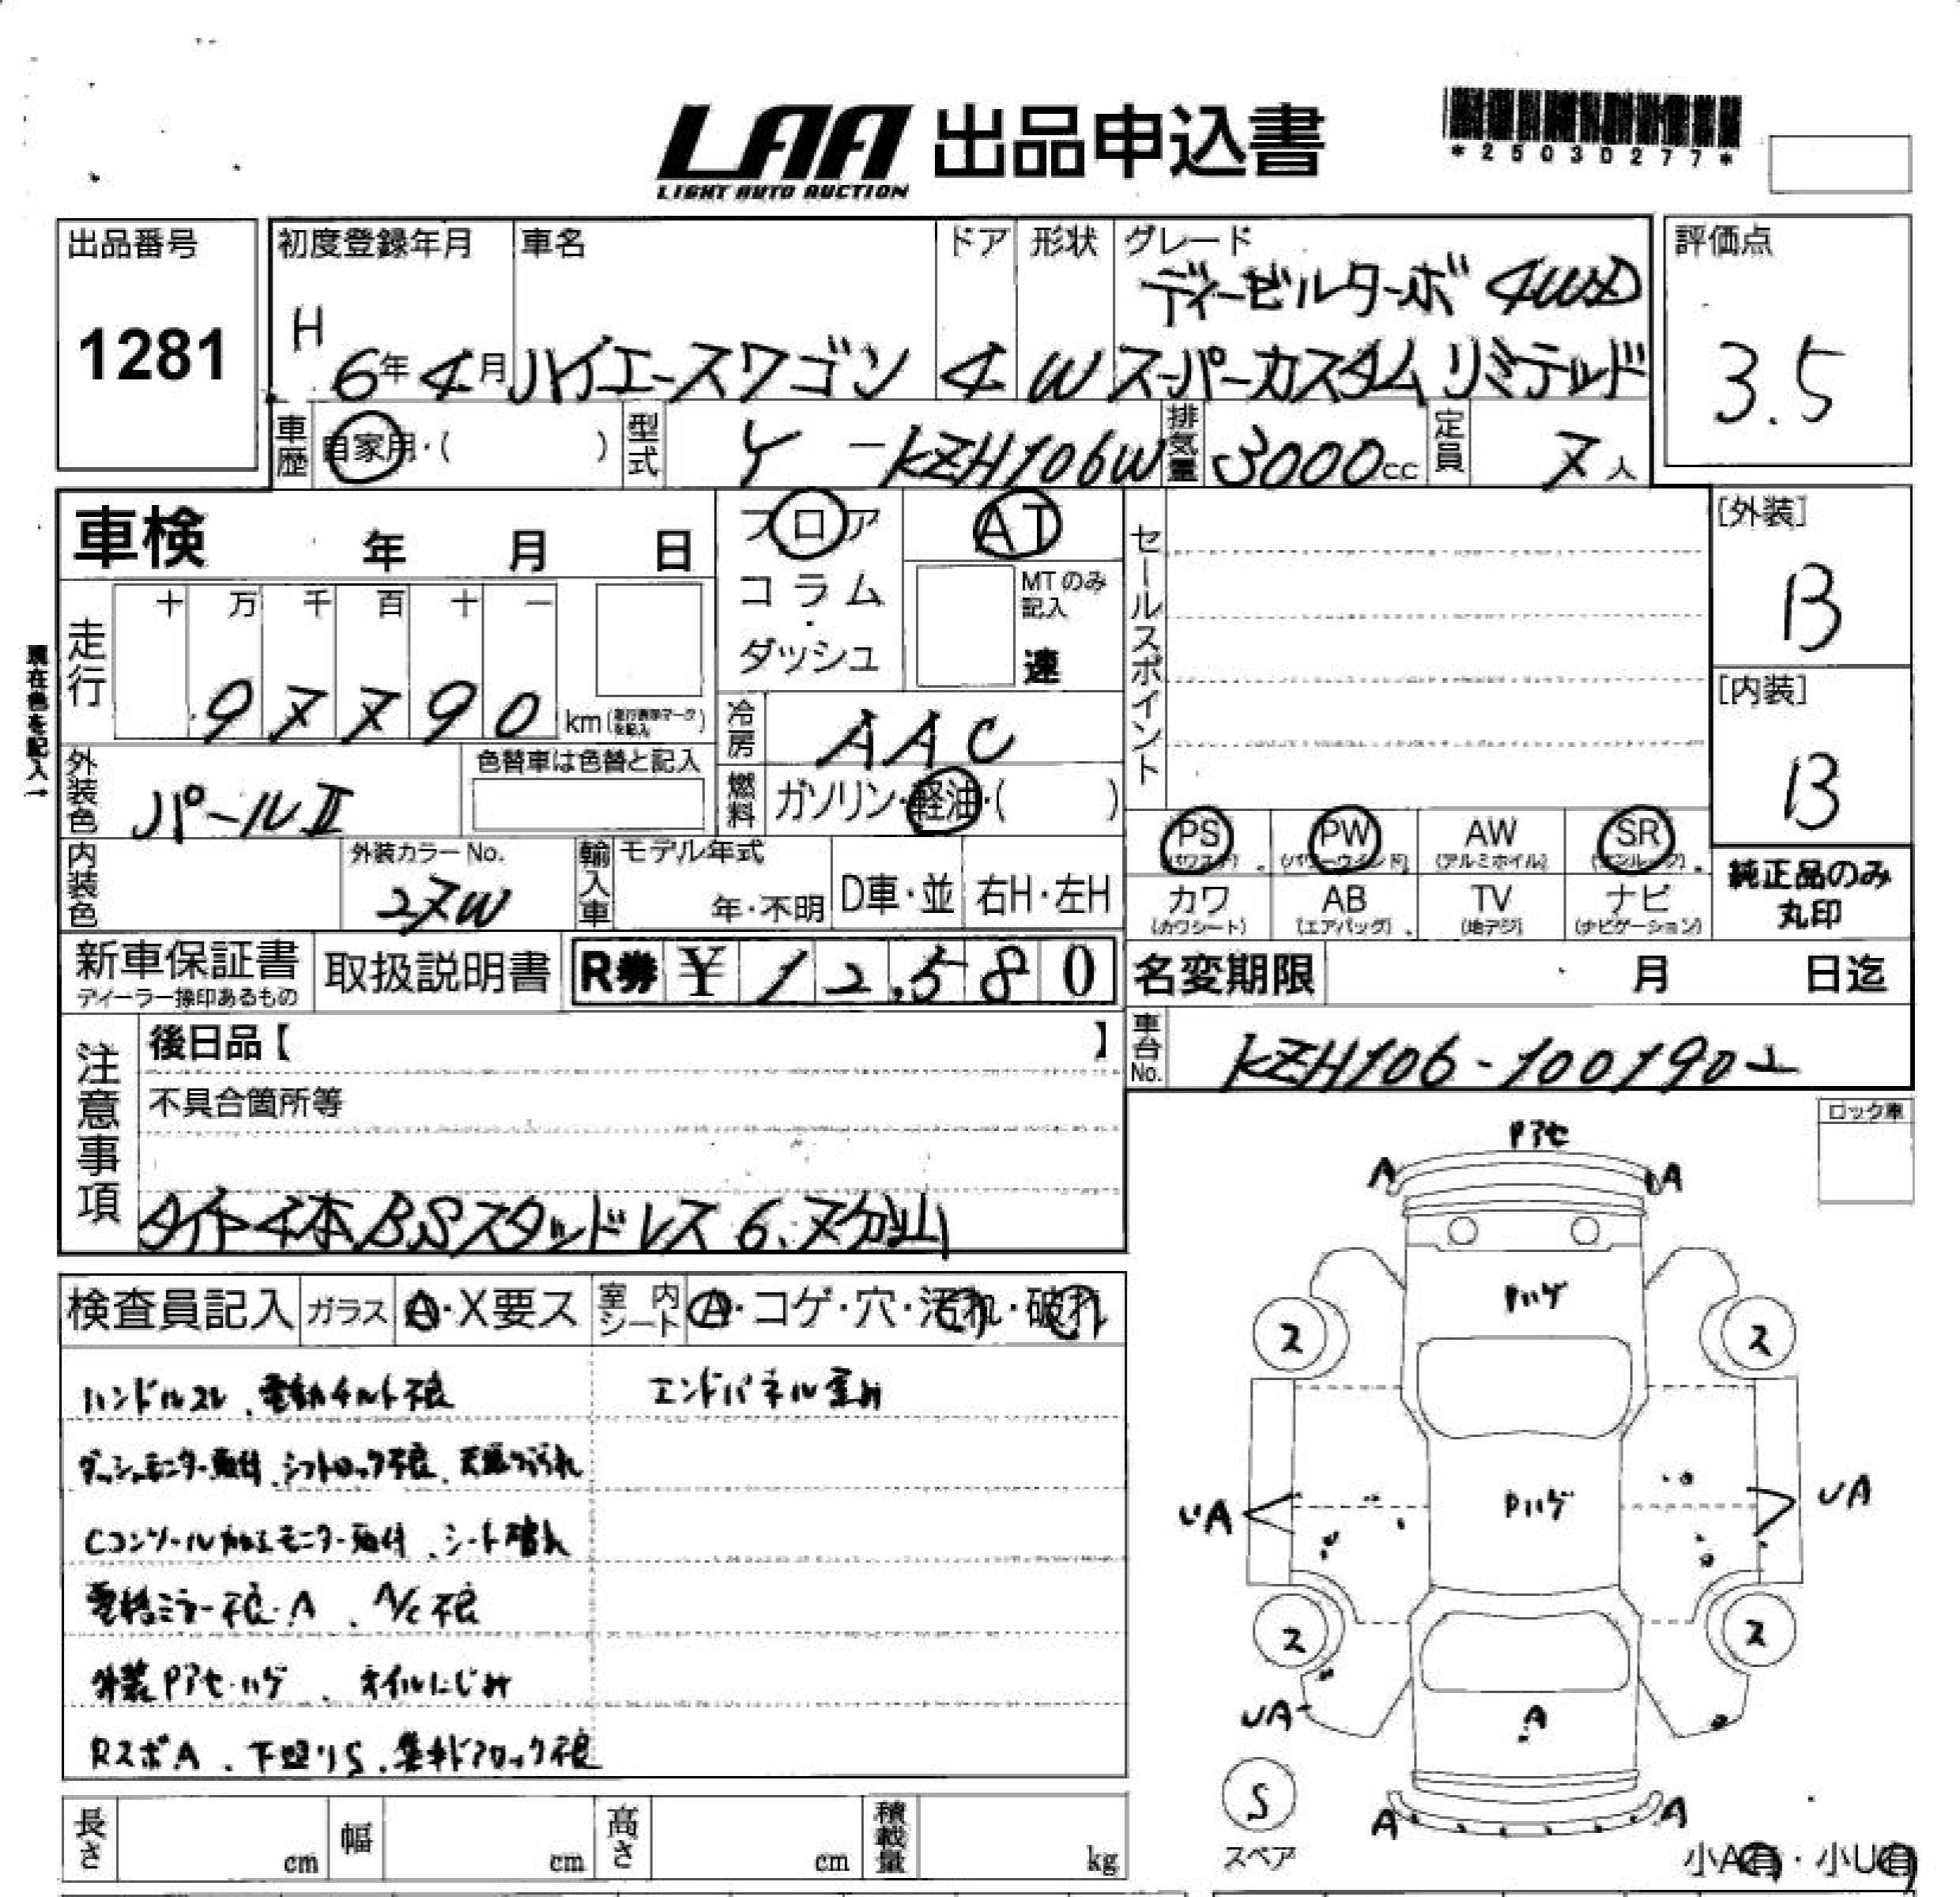 LAA 出品申込書
LIGHT AUTO AUCTION
*25030277*
出品番号
1281
初度登録年月
H 6年4月
車名
ハイエースワゴン
ドア
4
形状
W
グレード
ディーゼルターボ 4WD
スーパーカスタムリミテッド
評価点
3.5
車歴
自家用・( )
型式
Y-KZH106W
排気量
3000cc
定員
7人
車検 年 月 日
フロア
コラム
・
ダッシュ
AT
MTのみ
記入
速
セールスポイント
[外装]
B
[内装]
B
現在色を記入→
走行
十 万 千 百 十 一
97790 km
冷房
AAC
外装色
パールⅡ
色替車は色替と記入
燃料
ガソリン・軽油・( )
PS
(パワステ)
PW
(パワーウインド)
AW
(アルミホイル)
SR
(サンルーフ)
内装色
外装カラーNo.
27W
輸入車
モデル年式
年・不明
D車・並
右H・左H
カワ
(カワシート)
AB
(エアバッグ)
TV
(地デジ)
ナビ
(ナビゲーション)
純正品のみ
丸印
新車保証書
ディーラー捺印あるもの
取扱説明書
R券 ¥12,580
名変期限 月 日迄
注意事項
後日品【 】
不具合箇所等
タイヤ4本BSスタッドレス6、7分山
車台No.
KZH106-1001902
ロック車
検査員記入
ガラス
A・X要ス
室内シート
A・コゲ・穴・汚れ・破れ
ハンドルスレ、電動チルト不良
エンドパネル歪み
ダッシュモニター取付、シフトロック不良、天張り汚れ
Cコンソール加工モニター取付、シート破れ
電格ミラー不良・A、A/C不良
外装Pアセ・ハゲ、オイルにじみ
RスポA、下廻りS、集中ドアロック不良
Pアセ
A
A
Pハゲ
ス
ス
Pハゲ
UA
UA
ス
ス
UA
A
S
スペア
A
A
小A有・小U有
長さ cm
幅 cm
高さ cm
積載量 kg